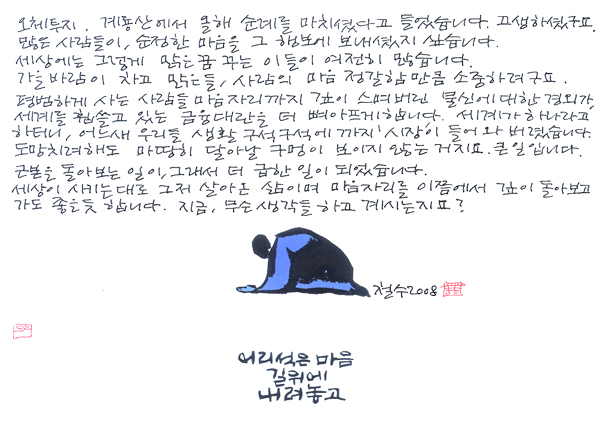 오체투지. 계룡산에서 올해 순례를 마치셨다고 들었습니다. 고생하셨구요.
많은 사람들이, 순정한 마음을 그 행보에 보내셨지 싶습니다.
세상에는 그렇게 맑은꿈 꾸는 이들이 여전히 많습니다.
가을바람이 차고 맑은들, 사람의 마음 정갈함만큼 소중하려구요.
평범하게 사는 사람들 마음자리까지 깊이 스며버린 물신에 대한 경외가,
세계를 휩쓸고 있는 금융대란을 더 뼈아프게합니다. 세계가 하나라고
하더니, 어느새 우리들 생활 구석구석에까지 '시장'이 들어 와 버렸습니다.
도망치려해도 마땅히 달아날 구멍이 보이지 않는 거지요. 큰일입니다.
근본을 돌아보는 일이, 그래서 더 급한 일이 되었습니다.
세상이 시키는대로 그저 살아온 삶이며 마음자리를 이쯤에서 깊이 돌아보고
가도 좋을듯 합니다. 지금, 무슨 생각들 하고 계시는지요?
철수2008
어리석은 마음
길위에
내려놓고